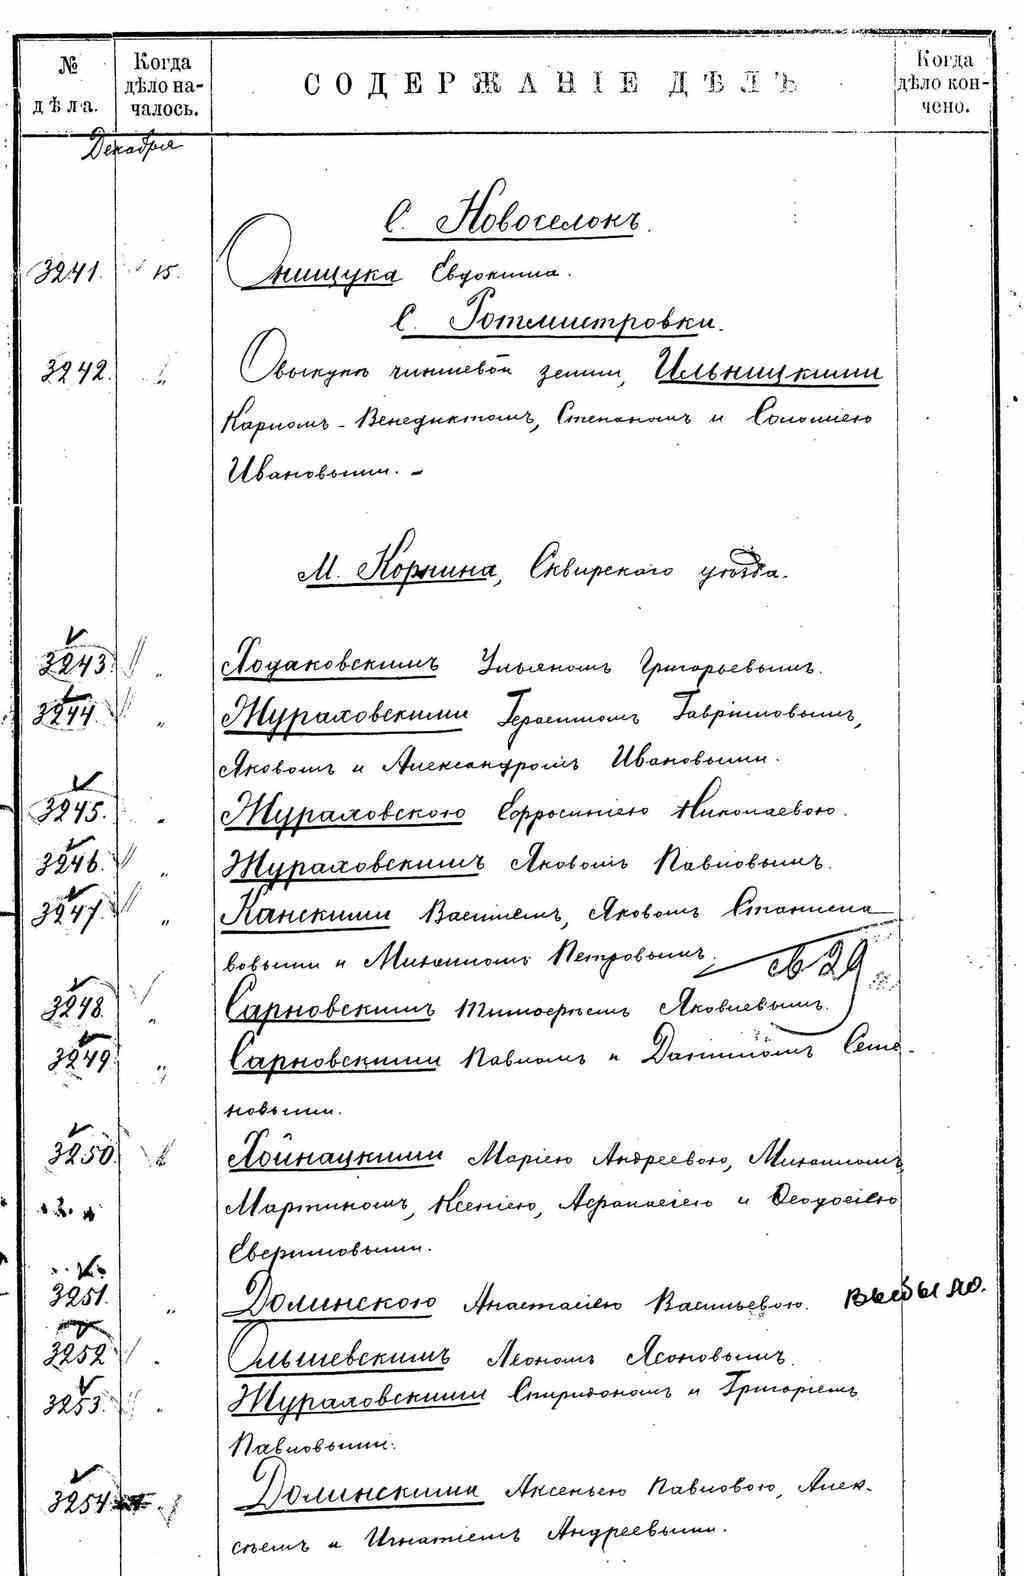 № дѣла.
Когда дѣло началось.
СОДЕРЖАНІЕ ДѢЛЪ
Когда дѣло кончено.
Декабря
С. Новоселокъ.
3241. 15. Онищука Евдокима.
С. Ротмистровки.
3242. " О выкупѣ чиншевой земли, Ильницкими
Карпомъ-Венедиктомъ, Степаномъ и Соломіею
Ивановыми. -
М. Корнина, Сквирскаго уѣзда.
3243. " Ходаковскимъ Ульяномъ Григорьевымъ.
3244. " Жураховскими Герасимомъ Гавріиловымъ,
Яковомъ и Александромъ Ивановыми.
3245. " Жураховскою Ефросиніею Николаевою.
3246. " Жураховскимъ Яковомъ Павловымъ.
3247. " Канскими Василіемъ, Яковомъ Станисла
вовыми и Михаиломъ Петровымъ.
3248. " Сарновскимъ Тимофѣемъ Яковлевымъ.
3249. " Сарновскими Павломъ и Даніиломъ Семе-
новыми.
3250. " Хойнацкими Маріею Андреевою, Михаиломъ,
Мартиномъ, Ксеніею, Афанасіею и Феодосіею
Севериновыми.
3251. " Долинскою Анастасіею Васильевою. Выбыло.
3252 " Ольшевскимъ Леономъ Ясоновымъ.
3253. " Жураховскими Спиридономъ и Григоріемъ
Павловыми.
3254 " Долинскими Аксеньею Павловою, Алек-
сѣемъ и Игнатіемъ Андреевыми.